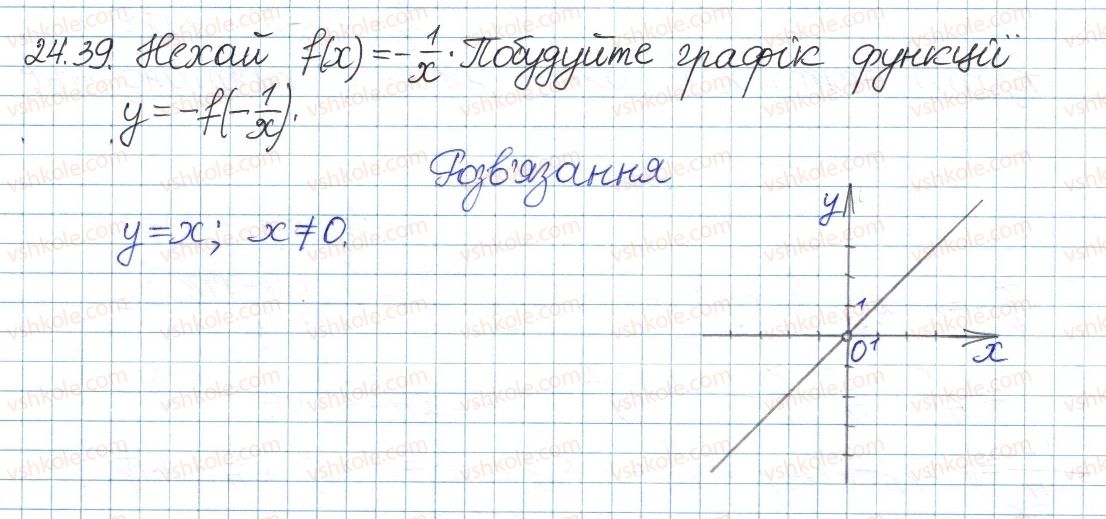 24.39. Нехай f(x) = -1/x. Побудуйте графік функції
y = -f(-1/x).
Розв'язання
y = x; x ≠ 0.
y
1
0 1
x
vshkole.com